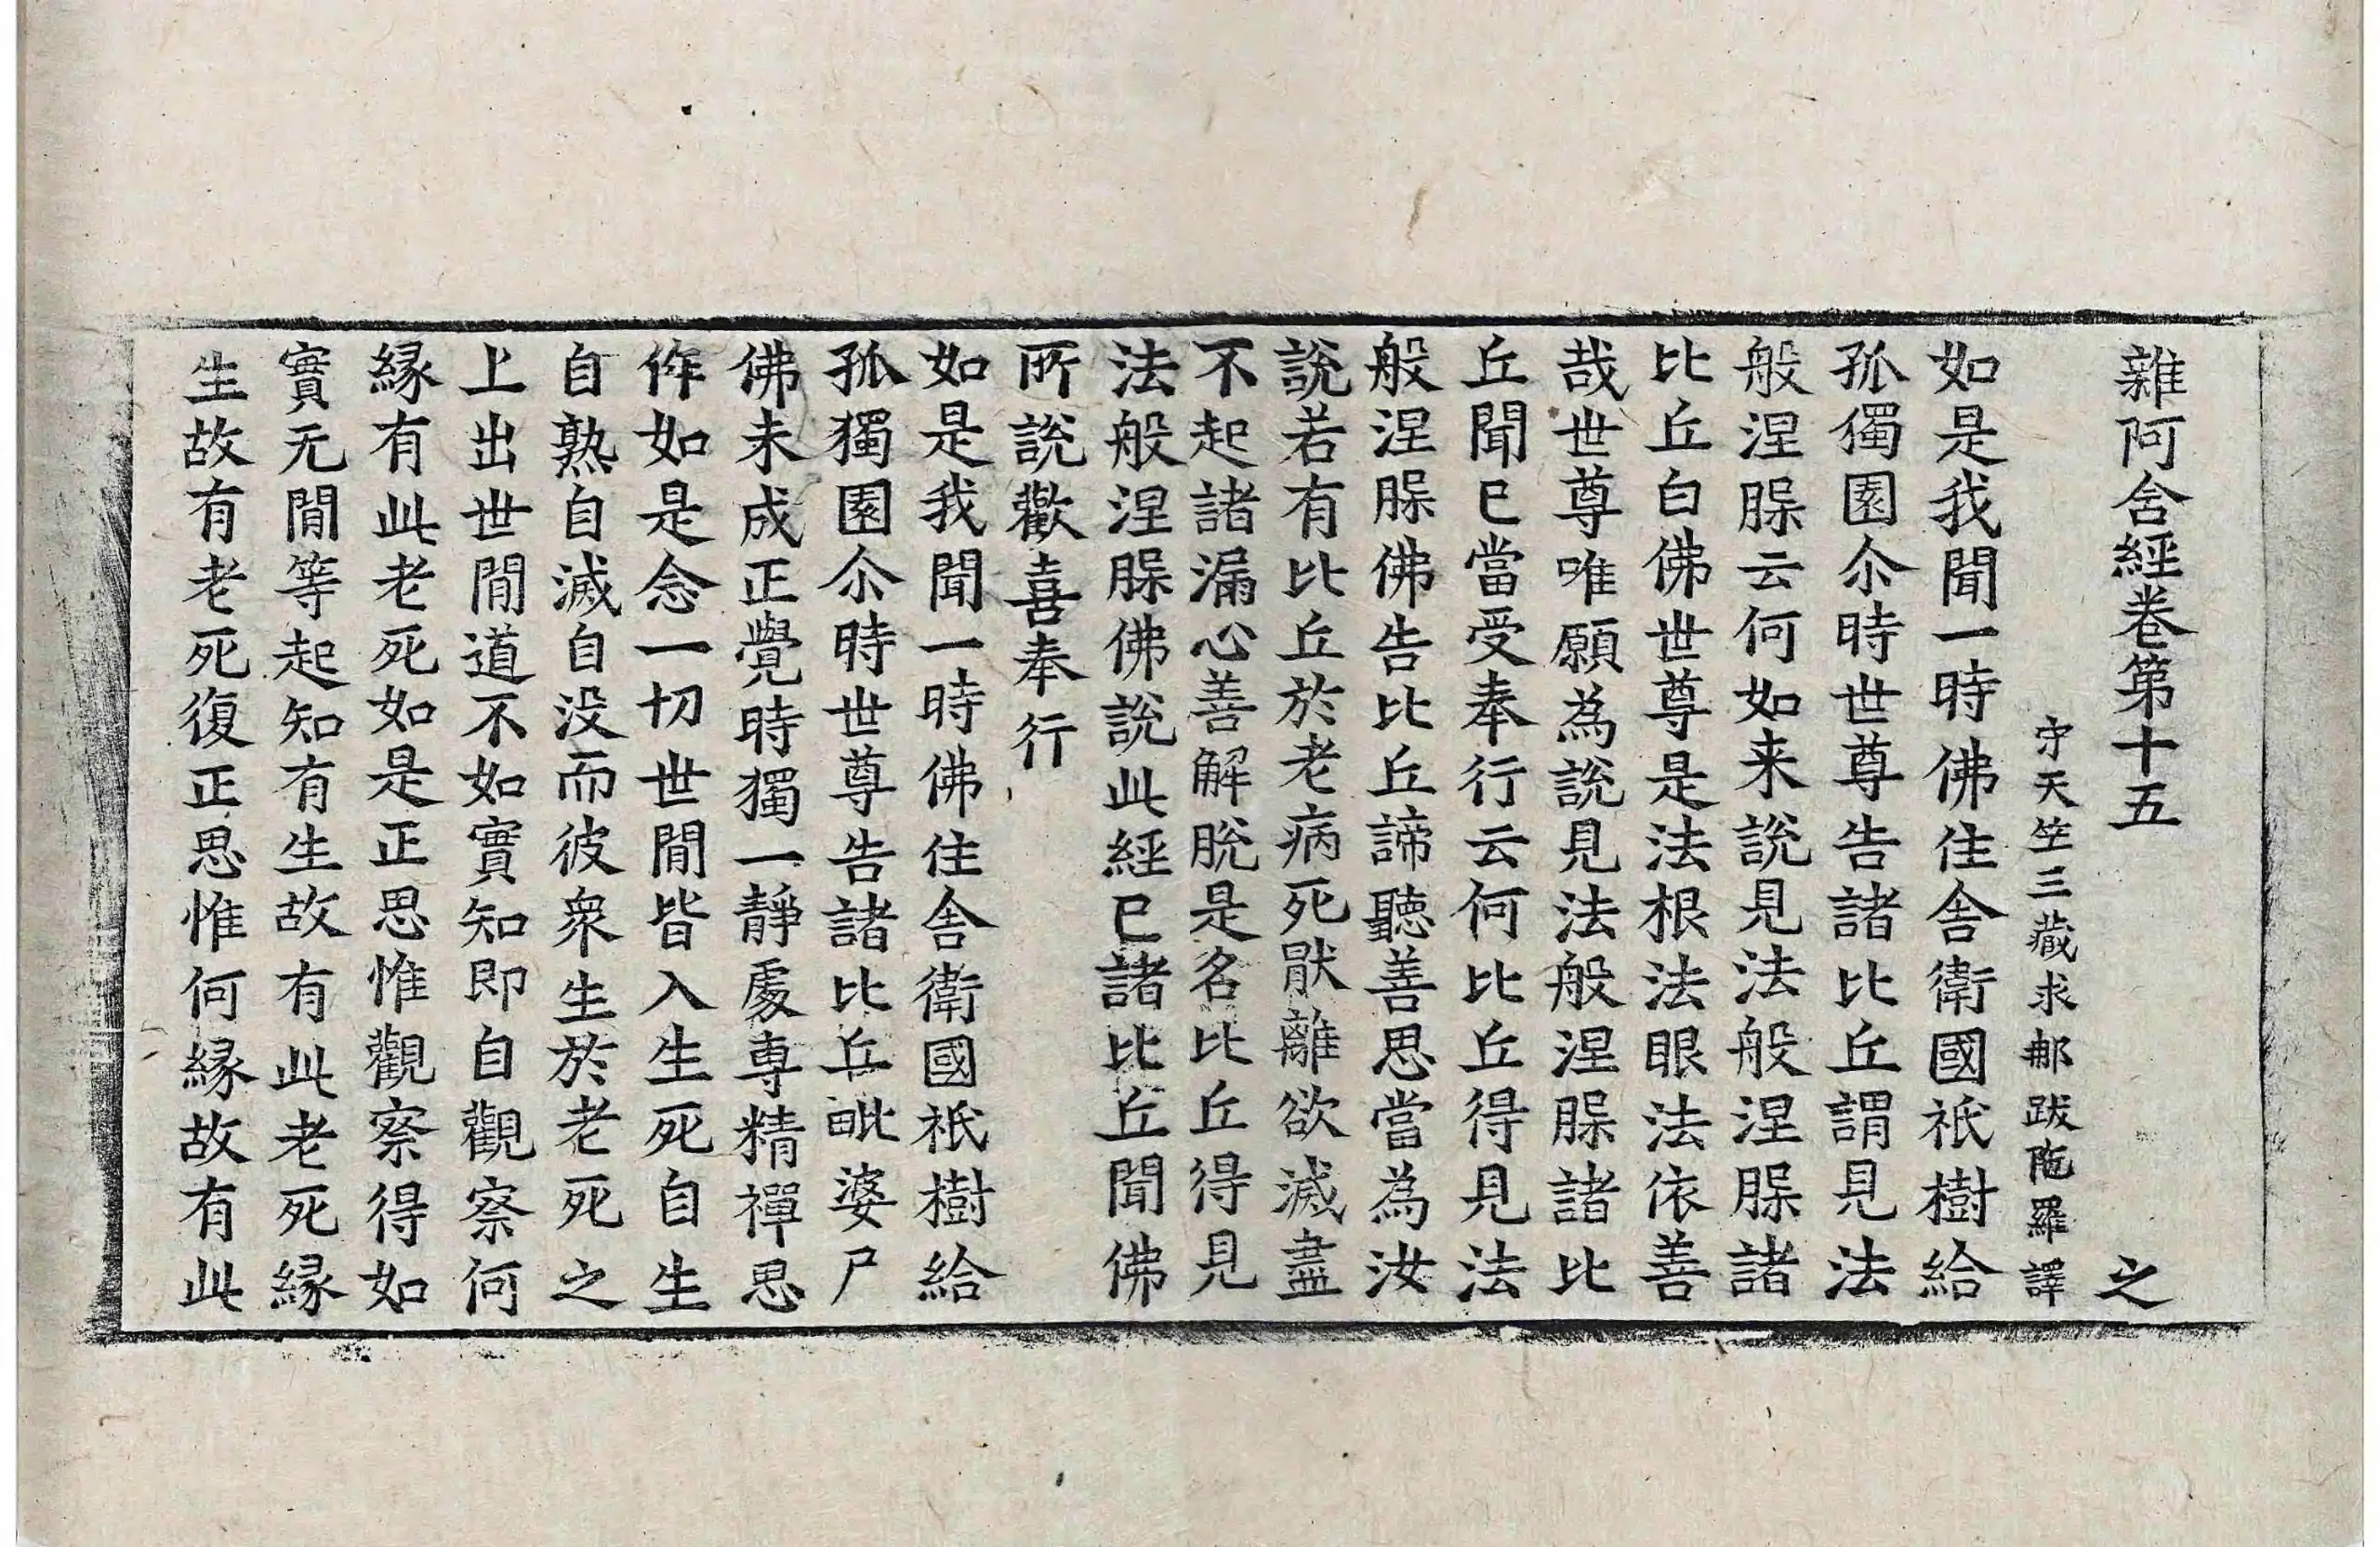 雜阿含經卷第十五 之
宋天竺三藏求那跋陁羅譯
如是我聞一時佛住舍衛國祇樹給
孤獨園尒時世尊告諸比丘謂見法
般涅槃云何如来說見法般涅槃諸
比丘白佛世尊是法根法眼法依善
哉世尊唯願為說見法般涅槃諸比
丘聞已當受奉行云何比丘得見法
般涅槃佛告比丘諦聽善思當為汝
說若有比丘於老病死猒離欲滅盡
不起諸漏心善解脫是名比丘得見
法般涅槃佛說此經已諸比丘聞佛
所說歡喜奉行
如是我聞一時佛住舍衛國祇樹給
孤獨園尒時世尊告諸比丘毗婆尸
佛未成正覺時獨一靜處專精禪思
作如是念一切世間皆入生死自生
自熟自滅自没而彼衆生於老死之
上出世間道不如實知即自觀察何
緣有此老死如是正思惟觀察得如
實无間等起知有生故有此老死緣
生故有老死復正思惟何緣故有此